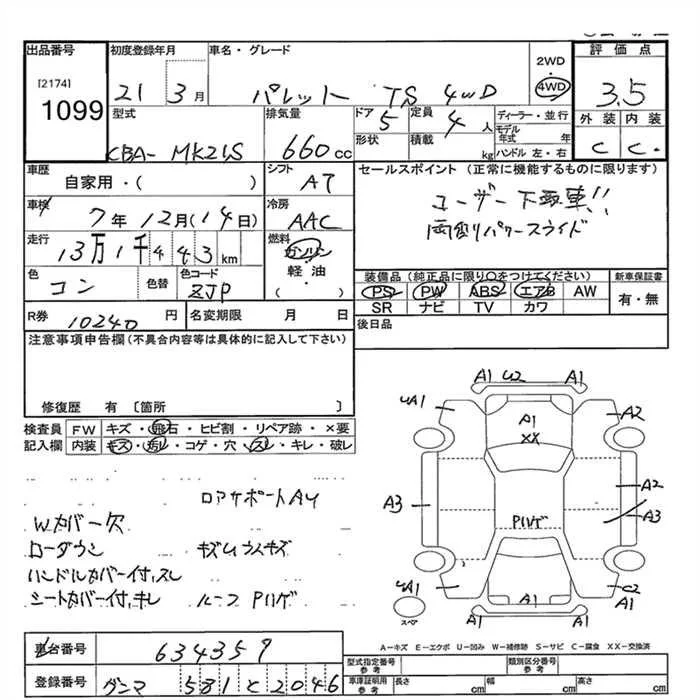 出品番号 初度登録年月 車名・グレード 2WD・4WD 評価点
[2174]
1099
21 3月 パレット TS 4WD 3.5
型式 排気量 ドア 5 定員 4人 ディーラー・並行 外装 内装
CBA- MK21S 660cc 形状 積載 kg モデル年式 年 C C
ハンドル 左・右
車歴 シフト セールスポイント (正常に機能するものに限ります)
自家用・( ) AT ユーザー下取車!!
車検 冷房 両側パワースライド
7年 12月(14日) AAC
走行 燃料
13万1千443km ガソリン・軽油・( )
色 色替 色コード 装備品 (純正品に限り○をつけてください) 新車保証書
コン ZJP PS PW ABS エアB AW 有・無
SR ナビ TV カワ
R券 10240円 名変期限 月 日 後日品
注意事項申告欄(不具合内容等は具体的に記入して下さい)
修復歴 有 〔箇所 〕
検査員 FW キズ・飛石・ヒビ割・リペア跡・×要
記入欄 内装 キズ・汚レ・コゲ・穴・スレ・キレ・破レ
ロアサポートAU
Wカバー欠
ローダウン
ハンドルカバー付,スレ
シートカバー付,キレ ルーフ Pハゲ
A1 W2 A1
A1 A2
A1
XX
A2
A3 A3
Pハゲ
A1 C2
A1 A1 A1
スペア
A-キズ E-エクボ U-凹み W-補修跡 S-サビ C-腐食 XX-交換済
車台番号 634359 型式指定番号 参考 類別区分番号 参考
登録番号 グンマ 581 と 2046 車庫証明用 参考 長さ cm 幅 cm 高さ cm